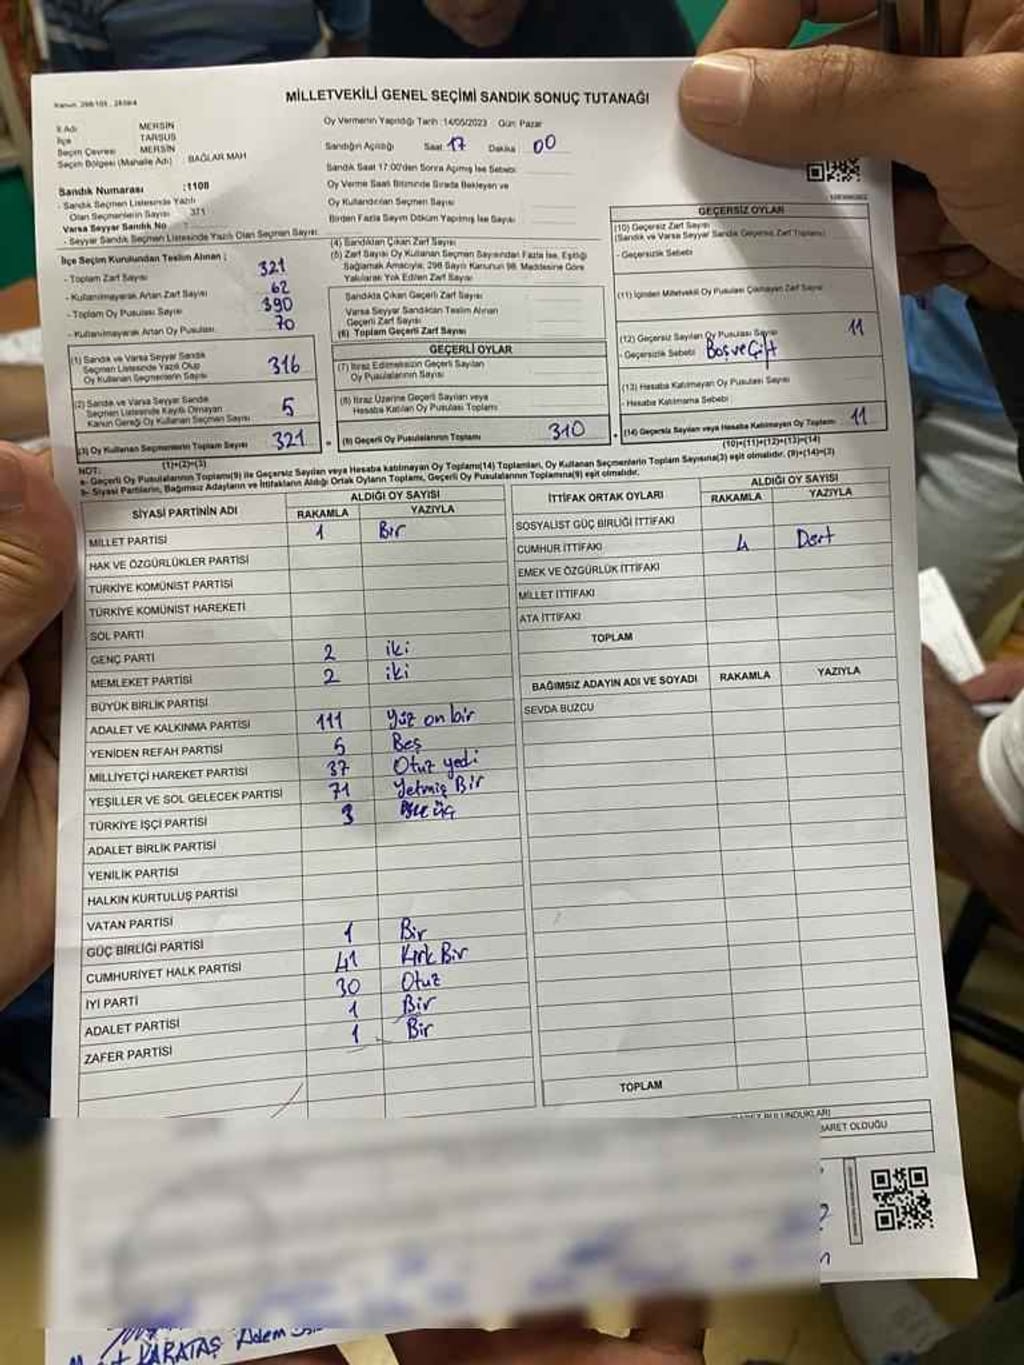 Kanun: 298/105 , 2839/4
MİLLETVEKİLİ GENEL SEÇİMİ SANDIK SONUÇ TUTANAĞI
İl Adı MERSİN
İlçe TARSUS
Seçim Çevresi MERSİN
Seçim Bölgesi (Mahalle Adı) : BAĞLAR MAH
Oy Vermenin Yapıldığı Tarih :14/05/2023 Gün: Pazar
Sandığın Açıldığı Saat 17 Dakika 00
Sandık Saat 17:00'den Sonra Açılmış İse Sebebi
Oy Verme Saati Bitiminde Sırada Bekleyen ve
Oy Kullandırılan Seçmen Sayısı
Birden Fazla Sayım Döküm Yapılmış İse Sayısı
Sandık Numarası :1108
- Sandık Seçmen Listesinde Yazılı
Olan Seçmenlerin Sayısı 371
Varsa Seyyar Sandık No
- Seyyar Sandık Seçmen Listesinde Yazılı Olan Seçmen Sayısı:
İlçe Seçim Kurulundan Teslim Alınan :
- Toplam Zarf Sayısı 321
- Kullanılmayarak Artan Zarf Sayısı 62
- Toplam Oy Pusulası Sayısı 390
- Kullanılmayarak Artan Oy Pusulası 70
(1) Sandık ve Varsa Seyyar Sandık
Seçmen Listesinde Yazılı Olup
Oy Kullanan Seçmenlerin Sayısı 316
(2) Sandık ve Varsa Seyyar Sandık
Seçmen Listesinde Kayıtlı Olmayan
Kanun Gereği Oy Kullanan Seçmen Sayısı 5
(3) Oy Kullanan Seçmenlerin Toplam Sayısı 321
(1)+(2)=(3)
(4) Sandıktan Çıkan Zarf Sayısı
(5) Zarf Sayısı Oy Kullanan Seçmen Sayısından Fazla İse, Eşitliği
Sağlamak Amacıyla; 298 Sayılı Kanunun 98. Maddesine Göre
Yakılarak Yok Edilen Zarf Sayısı
Sandıkta Çıkan Geçerli Zarf Sayısı
Varsa Seyyar Sandıktan Teslim Alınan
Geçerli Zarf Sayısı
(6) Toplam Geçerli Zarf Sayısı
GEÇERLİ OYLAR
(7) İtiraz Edilmeksizin Geçerli Sayılan
Oy Pusulalarının Sayısı
(8) İtiraz Üzerine Geçerli Sayılan veya
Hesaba Katılan Oy Pusulası Toplamı
(9) Geçerli Oy Pusulalarının Toplamı 310
GEÇERSİZ OYLAR
(10) Geçersiz Zarf Sayısı
(Sandık ve Varsa Seyyar Sandık Geçersiz Zarf Toplamı)
- Geçersizlik Sebebi
(11) İçinden Milletvekili Oy Pusulası Çıkmayan Zarf Sayısı
(12) Geçersiz Sayılan Oy Pusulası Sayısı 11
- Geçersizlik Sebebi Boş ve Çift
(13) Hesaba Katılmayan Oy Pusulası Sayısı
- Hesaba Katılmama Sebebi :
(14) Geçersiz Sayılan veya Hesaba Katılmayan Oy Toplamı 11
(10)+(11)+(12)+(13)=(14)
NOT:
a- Geçerli Oy Pusulalarının Toplamı(9) ile Geçersiz Sayılan veya Hesaba katılmayan Oy Toplamı(14) Toplamları, Oy Kullanan Seçmenlerin Toplam Sayısına(3) eşit olmalıdır. (9)+(14)=(3)
b- Siyasi Partilerin, Bağımsız Adayların ve İttifakların Aldığı Ortak Oyların Toplamı, Geçerli Oy Pusulalarının Toplamına(9) eşit olmalıdır.
SİYASİ PARTİNİN ADI ALDIĞI OY SAYISI
RAKAMLA YAZIYLA
MİLLET PARTİSİ 1 Bir
HAK VE ÖZGÜRLÜKLER PARTİSİ
TÜRKİYE KOMÜNİST PARTİSİ
TÜRKİYE KOMÜNİST HAREKETİ
SOL PARTİ
GENÇ PARTİ 2 iki
MEMLEKET PARTİSİ 2 iki
BÜYÜK BİRLİK PARTİSİ
ADALET VE KALKINMA PARTİSİ 111 Yüz on bir
YENİDEN REFAH PARTİSİ 5 Beş
MİLLİYETÇİ HAREKET PARTİSİ 37 Otuz yedi
YEŞİLLER VE SOL GELECEK PARTİSİ 71 Yetmiş Bir
TÜRKİYE İŞÇİ PARTİSİ 3 üç
ADALET BİRLİK PARTİSİ
YENİLİK PARTİSİ
HALKIN KURTULUŞ PARTİSİ
VATAN PARTİSİ
GÜÇ BİRLİĞİ PARTİSİ 1 Bir
CUMHURİYET HALK PARTİSİ 41 Kırk Bir
İYİ PARTİ 30 Otuz
ADALET PARTİSİ 1 Bir
ZAFER PARTİSİ 1 Bir
İTTİFAK ORTAK OYLARI ALDIĞI OY SAYISI
RAKAMLA YAZIYLA
SOSYALİST GÜÇ BİRLİĞİ İTTİFAKI
CUMHUR İTTİFAKI 4 Dört
EMEK VE ÖZGÜRLÜK İTTİFAKI
MİLLET İTTİFAKI
ATA İTTİFAKI
TOPLAM
BAĞIMSIZ ADAYIN ADI VE SOYADI RAKAMLA YAZIYLA
SEVDA BUZCU
TOPLAM
BARET OLDUĞU
KARATAŞ Adem